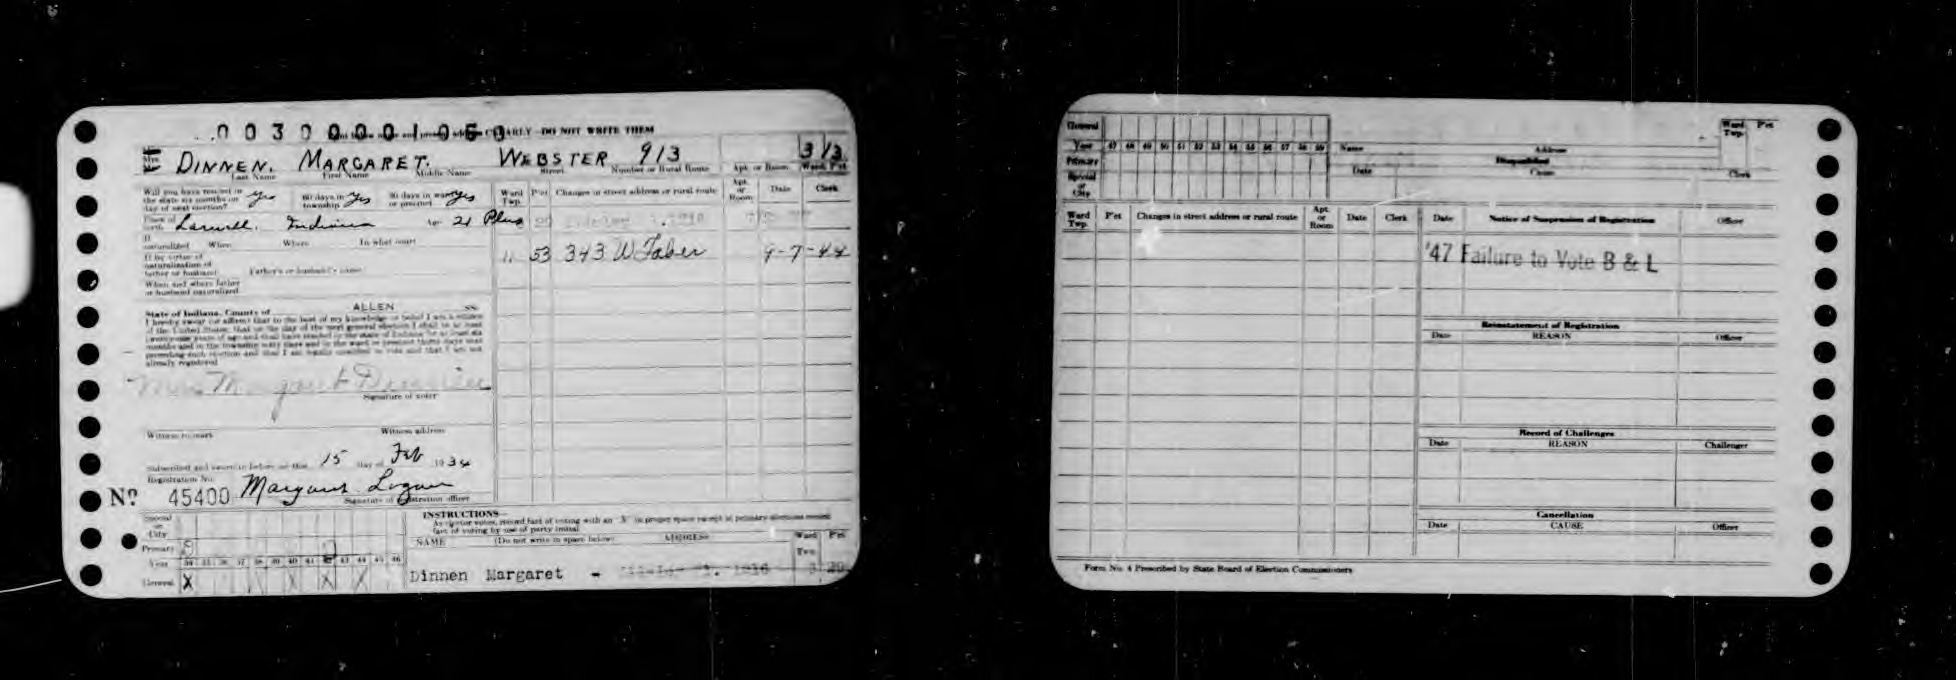 0030001060
CLEARLY—DO NOT WRITE THEM
DINNEN, MARGARET. WEBSTER 913 3 13
Last Name First Name Middle Name Street Number or Rural Route Apt. or Room Ward Pct
Will you have resided in the state six months on day of next election? Yes 60 days in township Yes 30 days in ward or precinct Yes
Ward Twp. Pct Changes in street address or rural route Apt. or Room Date Clerk
Place of birth Larwill, Indiana Age 21 Plus
If naturalized When Where In what court
11 53 343 W Taber 9-7-44
If by virtue of naturalization of father or husband Father's or husband's name
When and where father or husband naturalized
State of Indiana, County of ALLEN SS.
I hereby swear (or affirm) that to the best of my knowledge or belief I am a citizen
of the United States; that on the day of the next general election I shall be at least
already registered
Mrs Margaret Dinnen
Signature of voter
Witness to mark Witness address
Subscribed and sworn to before me this 15 day of Feb 1934
Registration No.
No 45400 Margaret Logan
Signature of registration officer
Special or City
Primary
Year 34 35 36 37 38 39 40 41 42 43 44 45 46
General X X X X
INSTRUCTIONS—
As elector votes, record fact of voting with an "X" in proper space except in primary elections record
fact of voting by use of party initial
NAME (Do not write in space below) ADDRESS Ward Twp. Pct
Dinnen Margaret - 1816 3 20
General
Year 47 48 49 50 51 52 53 54 55 56 57 58 59
Primary
Special or City
Name Address
Disqualified
Date Cause Clerk
Ward Twp. Pct
Ward Twp. P'ct Changes in street address or rural route Apt. or Room Date Clerk
Date Notice of Suspension of Registration Officer
'47 Failure to Vote B & L
Reinstatement of Registration
Date REASON Officer
Record of Challenges
Date REASON Challenger
Cancellation
Date CAUSE Officer
Form No. 4 Prescribed by State Board of Election Commissioners